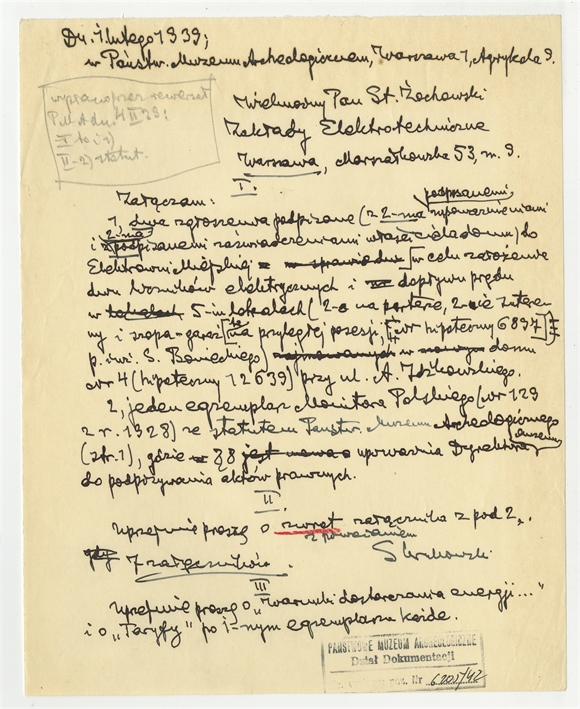 Dn. 1 lutego 1939;
w Państw. Muzeum Archeologicznem, Warszawa 1, Agrykola 9.
P.M.A. dn. 4 II 39:
I
II-2) statut.
Wielmożny Pan St. Żochowski
Zakłady Elektrotechniczne
Warszawa, Marszałkowska 53, m. 9.
I.
Załączam:
podpisanemi
1, dwa zgłoszenia podpisane (z 2-ma upoważnieniami
2-ma
i podpisanemi zaświadczeniami właściciela domu) do
Elektrowni Miejskiej w celu założenia
dwu liczników elektrycznych i dopływu prądu
w lokalach 5-iu lokalach (2-a na parterze, 2-gie
ny i szopa-garaż na przyległej posesji, nr hipoteczny 6897)
p. inż. S. Bonieckiego w domu
nr 4 (hipoteczny 12639) przy ul. A.
2, jeden egzemplarz Monitora Polskiego (nr 129
z r. 1928) ze statutem Państw. Muzeum Archeologicznego
(str. 1), gdzie § 8 upoważnia Dyrektora Muzeum
do podpisywania aktów prawnych.
II
Uprzejmie proszę o zwrot załącznika z pod 2,.
z poważaniem
7 załączników.
III
Uprzejmie proszę o „Warunki dostarczania energji..."
i o „Taryfy" po 1-nym egzemplarzu każde.
PAŃSTWOWE MUZEUM ARCHEOLOGICZNE
Dział Dokumentacji
Nr 6200/42